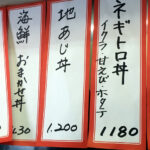 ネギトロ丼
イクラ 甘えび ホタテ
1180
地あじ丼
1.200
海鮮おまかせ丼
1.30